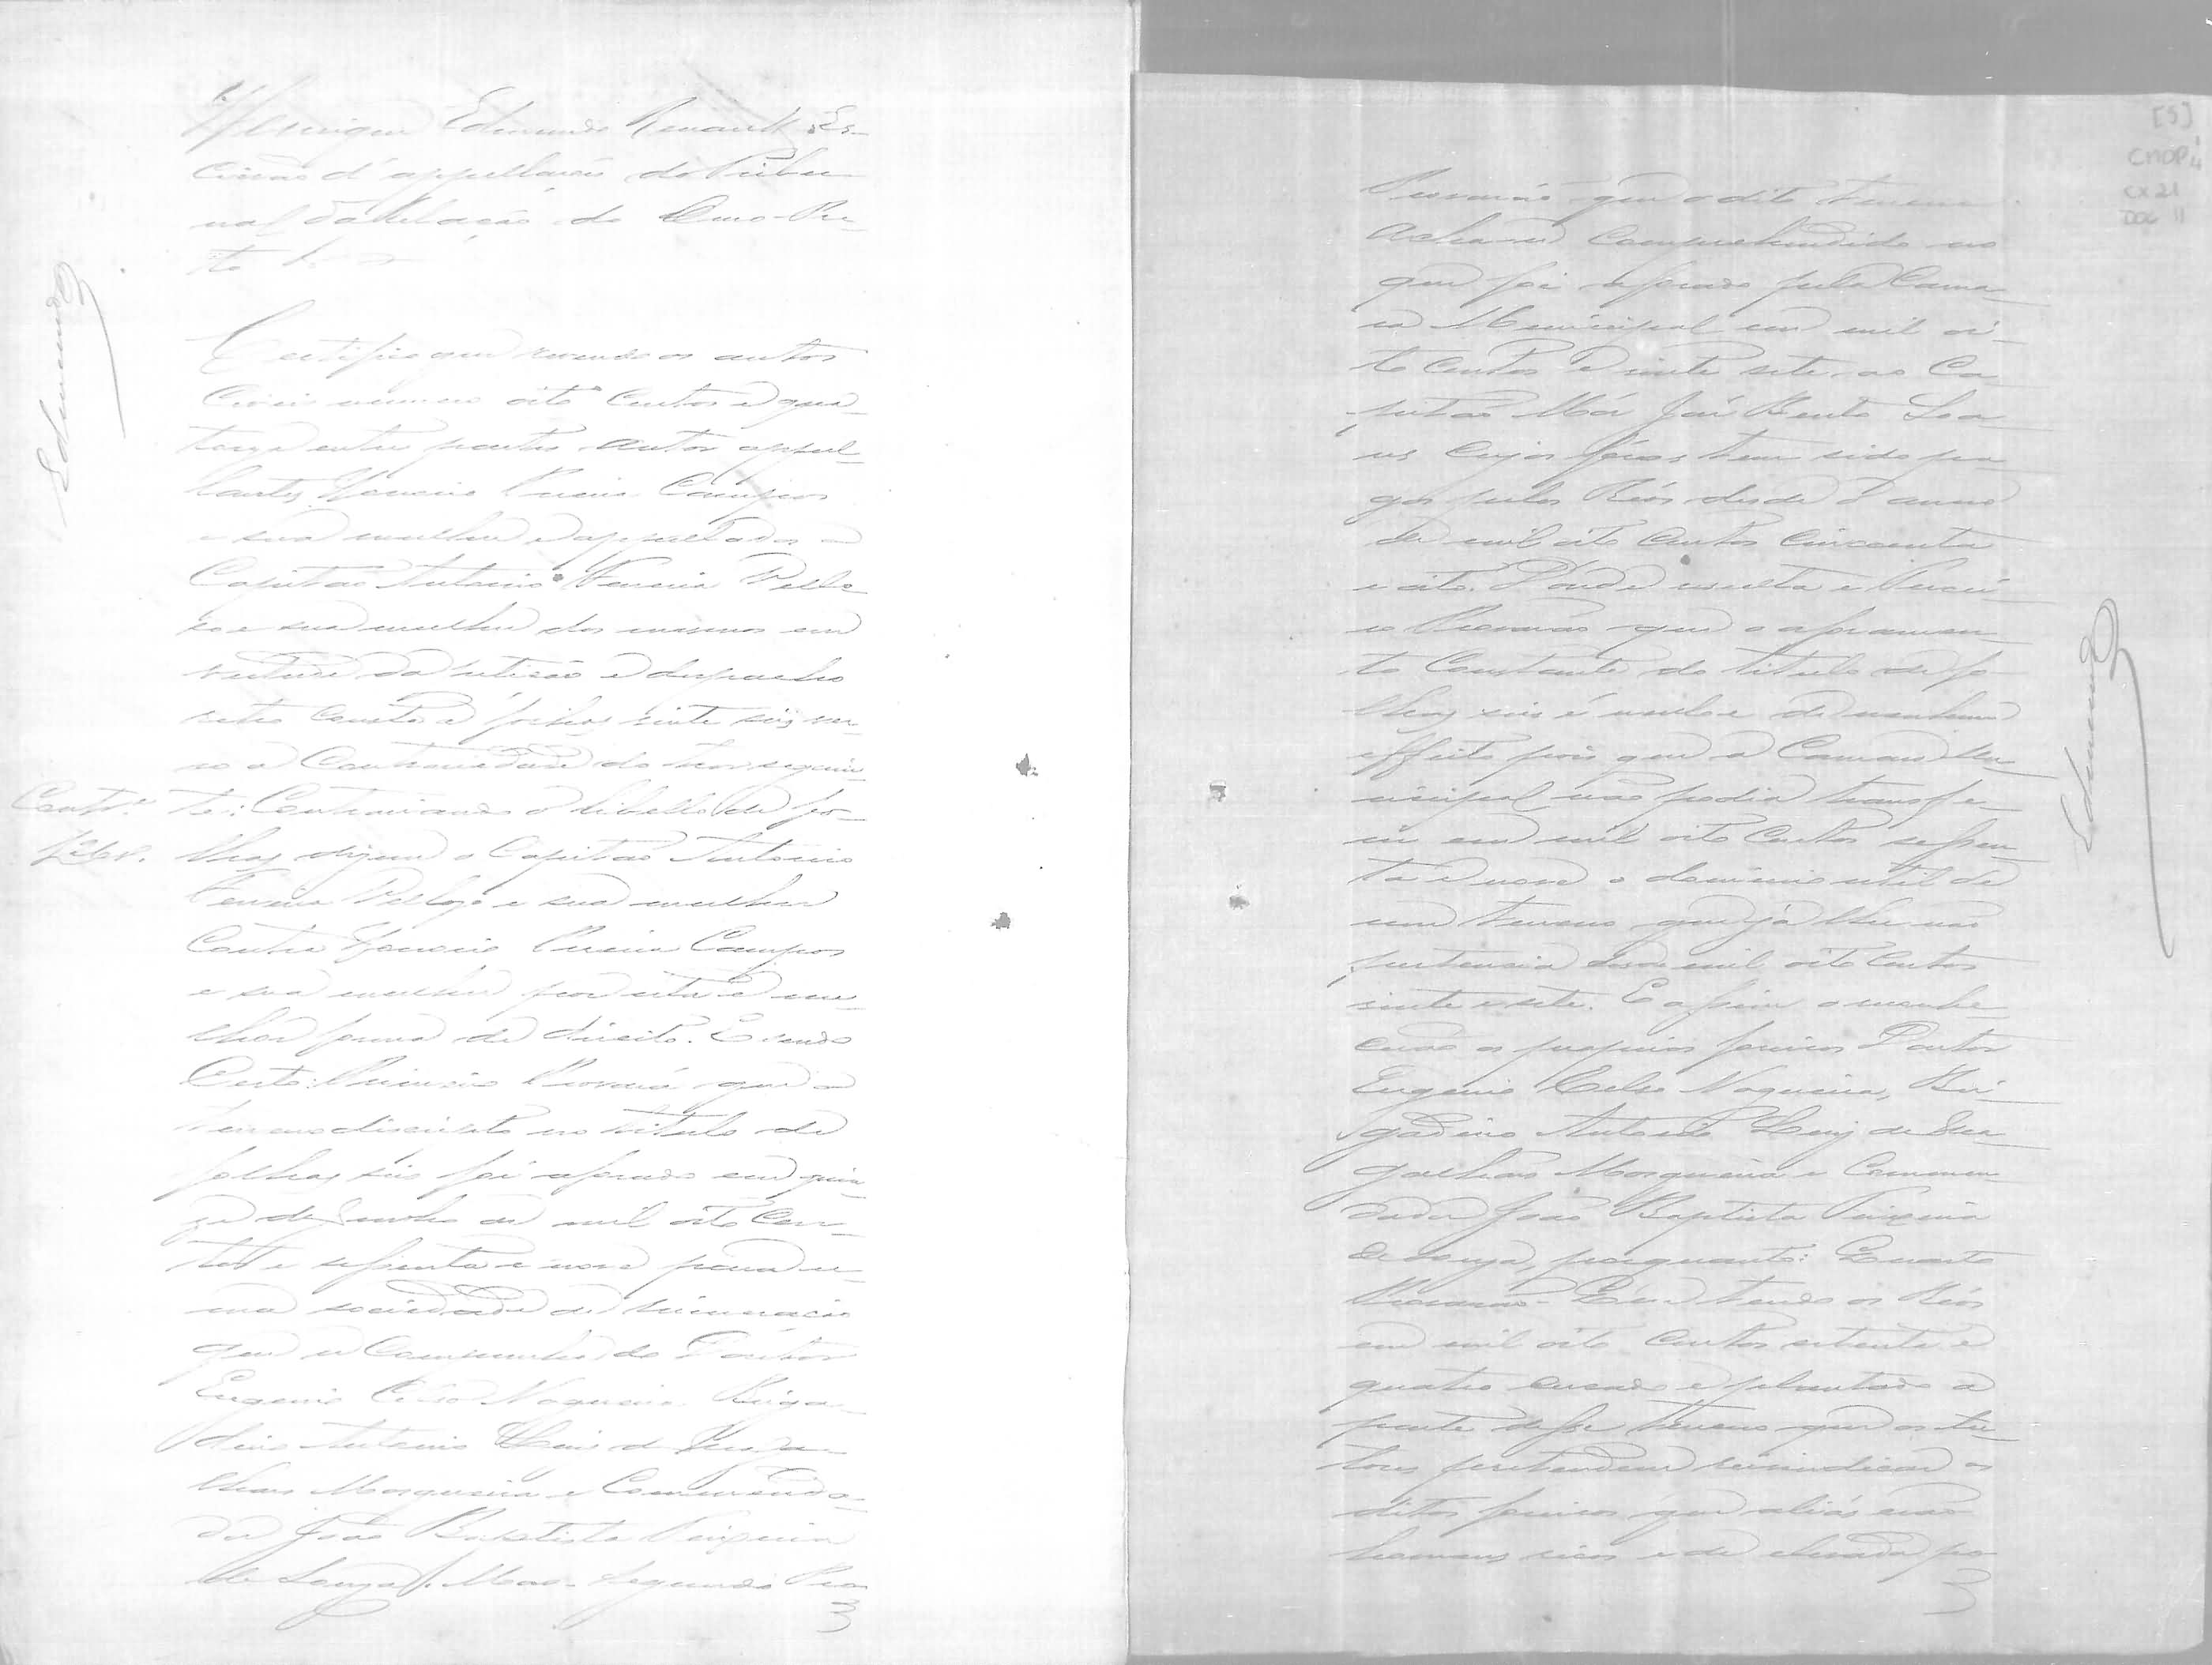 Henrique Edmundo Renault, Es-
crivão d'appellação do Tribu-
nal da Relação do Ouro-Pre-
to
Edmundo
Certifico que revendo os autos
civeis numero oito centos e qua-
torze entre partes autor appel-
lantes Honorio Pereira Campos
e sua mulher e appellados o
Capitão Antonio Ferreira Vello
so e sua mulher dos mesmos em
virtude da petição e despacho
retro consta a folhas vinte seis ver-
so a Contrariedade do teor seguin-
te: Contrariando o libello de fo-
Contr.e
lhas dizem o Capitão Antonio
Ferreira Vellozo e sua mulher
Contra Honorio Pereira Campos
e sua mulher por esta e me
lhor forma de direito. E sendo
Certo: Primeiro Provará que o
terreno discripto no titulo de
folhas seis foi aforado em quin
ze de Junho de mil oito cen-
tos e sessenta e nove para u-
ma sociedade de mineração
que se compunha do Doutor
Eugenio Celso Nogueira, Briga-
deiro Antonio Luiz de Maga-
lhães Mosqueira e Commenda-
dor João Baptista Teixeira
de Souza. Segundo Pro
3
[5]
CMOP
CX 21
DOC 11
Provarão que o dito terreno
acha-se comprehendido no
que foi aforado pela Cama-
ra Municipal em mil oi-
to centos e vinte sete ao Ca-
pitão Mór José Bento Soa-
res cujos fóros tem sido pa
gos pelos Réos desde o anno
de mil oito centos cincoenta
e oito. D'onde resulta e Tercei-
ro Provarão que o aforamen-
to constante do titulo de fo-
lhas seis é nullo e de nenhum
effeito pois que a Camara Mu-
nicipal não podia transfe-
rir em mil oito centos sessen-
ta e nove o dominio util de
um terreno que já lhe não
pertencia desde mil oito centos
vinte e sete. E assim o reconhe-
cerão os proprios foreiros Doutor
Eugenio Celso Nogueira, Bri-
gadeiro Antonio Luiz de Ma
galhães Mosqueira e Commen
dador João Baptista Teixeira
de Souza, porquanto: Quarto
Provarão - Que tendo os Réos
em mil oito centos setenta e
quatro cercado e plantado a
parte desse terreno que os Au-
tores pretendem reivindicar os
ditos foreiros que aliás erão
homens ricos e de elevada po
3
Edmundo